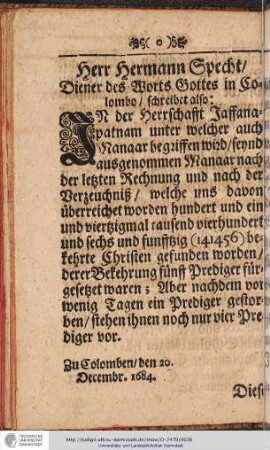 ( o )
Herr Hermann Specht/
Diener des Worts Gottes in Co-
lombo/ schreibet also:
IN der Herrschafft Jaffana-
patnam unter welcher auch
Manaar begriffen wird/ seynd
ausgenommen Manaar nach
der letzten Rechnung und nach der
Verzeuchniß/ welche uns davon
überreichet worden hundert und ein
und viertzigmal tausend vierhundert
und sechs und funfftzig (141456) be-
kehrte Christen gefunden worden/
derer Bekehrung fünff Prediger für-
gesetzet waren; Aber nachdem vor
wenig Tagen ein Prediger gestor-
ben/ stehen ihnen noch nur vier Pre-
diger vor.
Zu Colomben/ den 20.
Decembr. 1684.
Diese
TECHNISCHE
UNIVERSITÄT
DARMSTADT
http://tudigit.ulb.tu-darmstadt.de/show/O-2470/0036
Universitäts- und Landesbibliothek Darmstadt